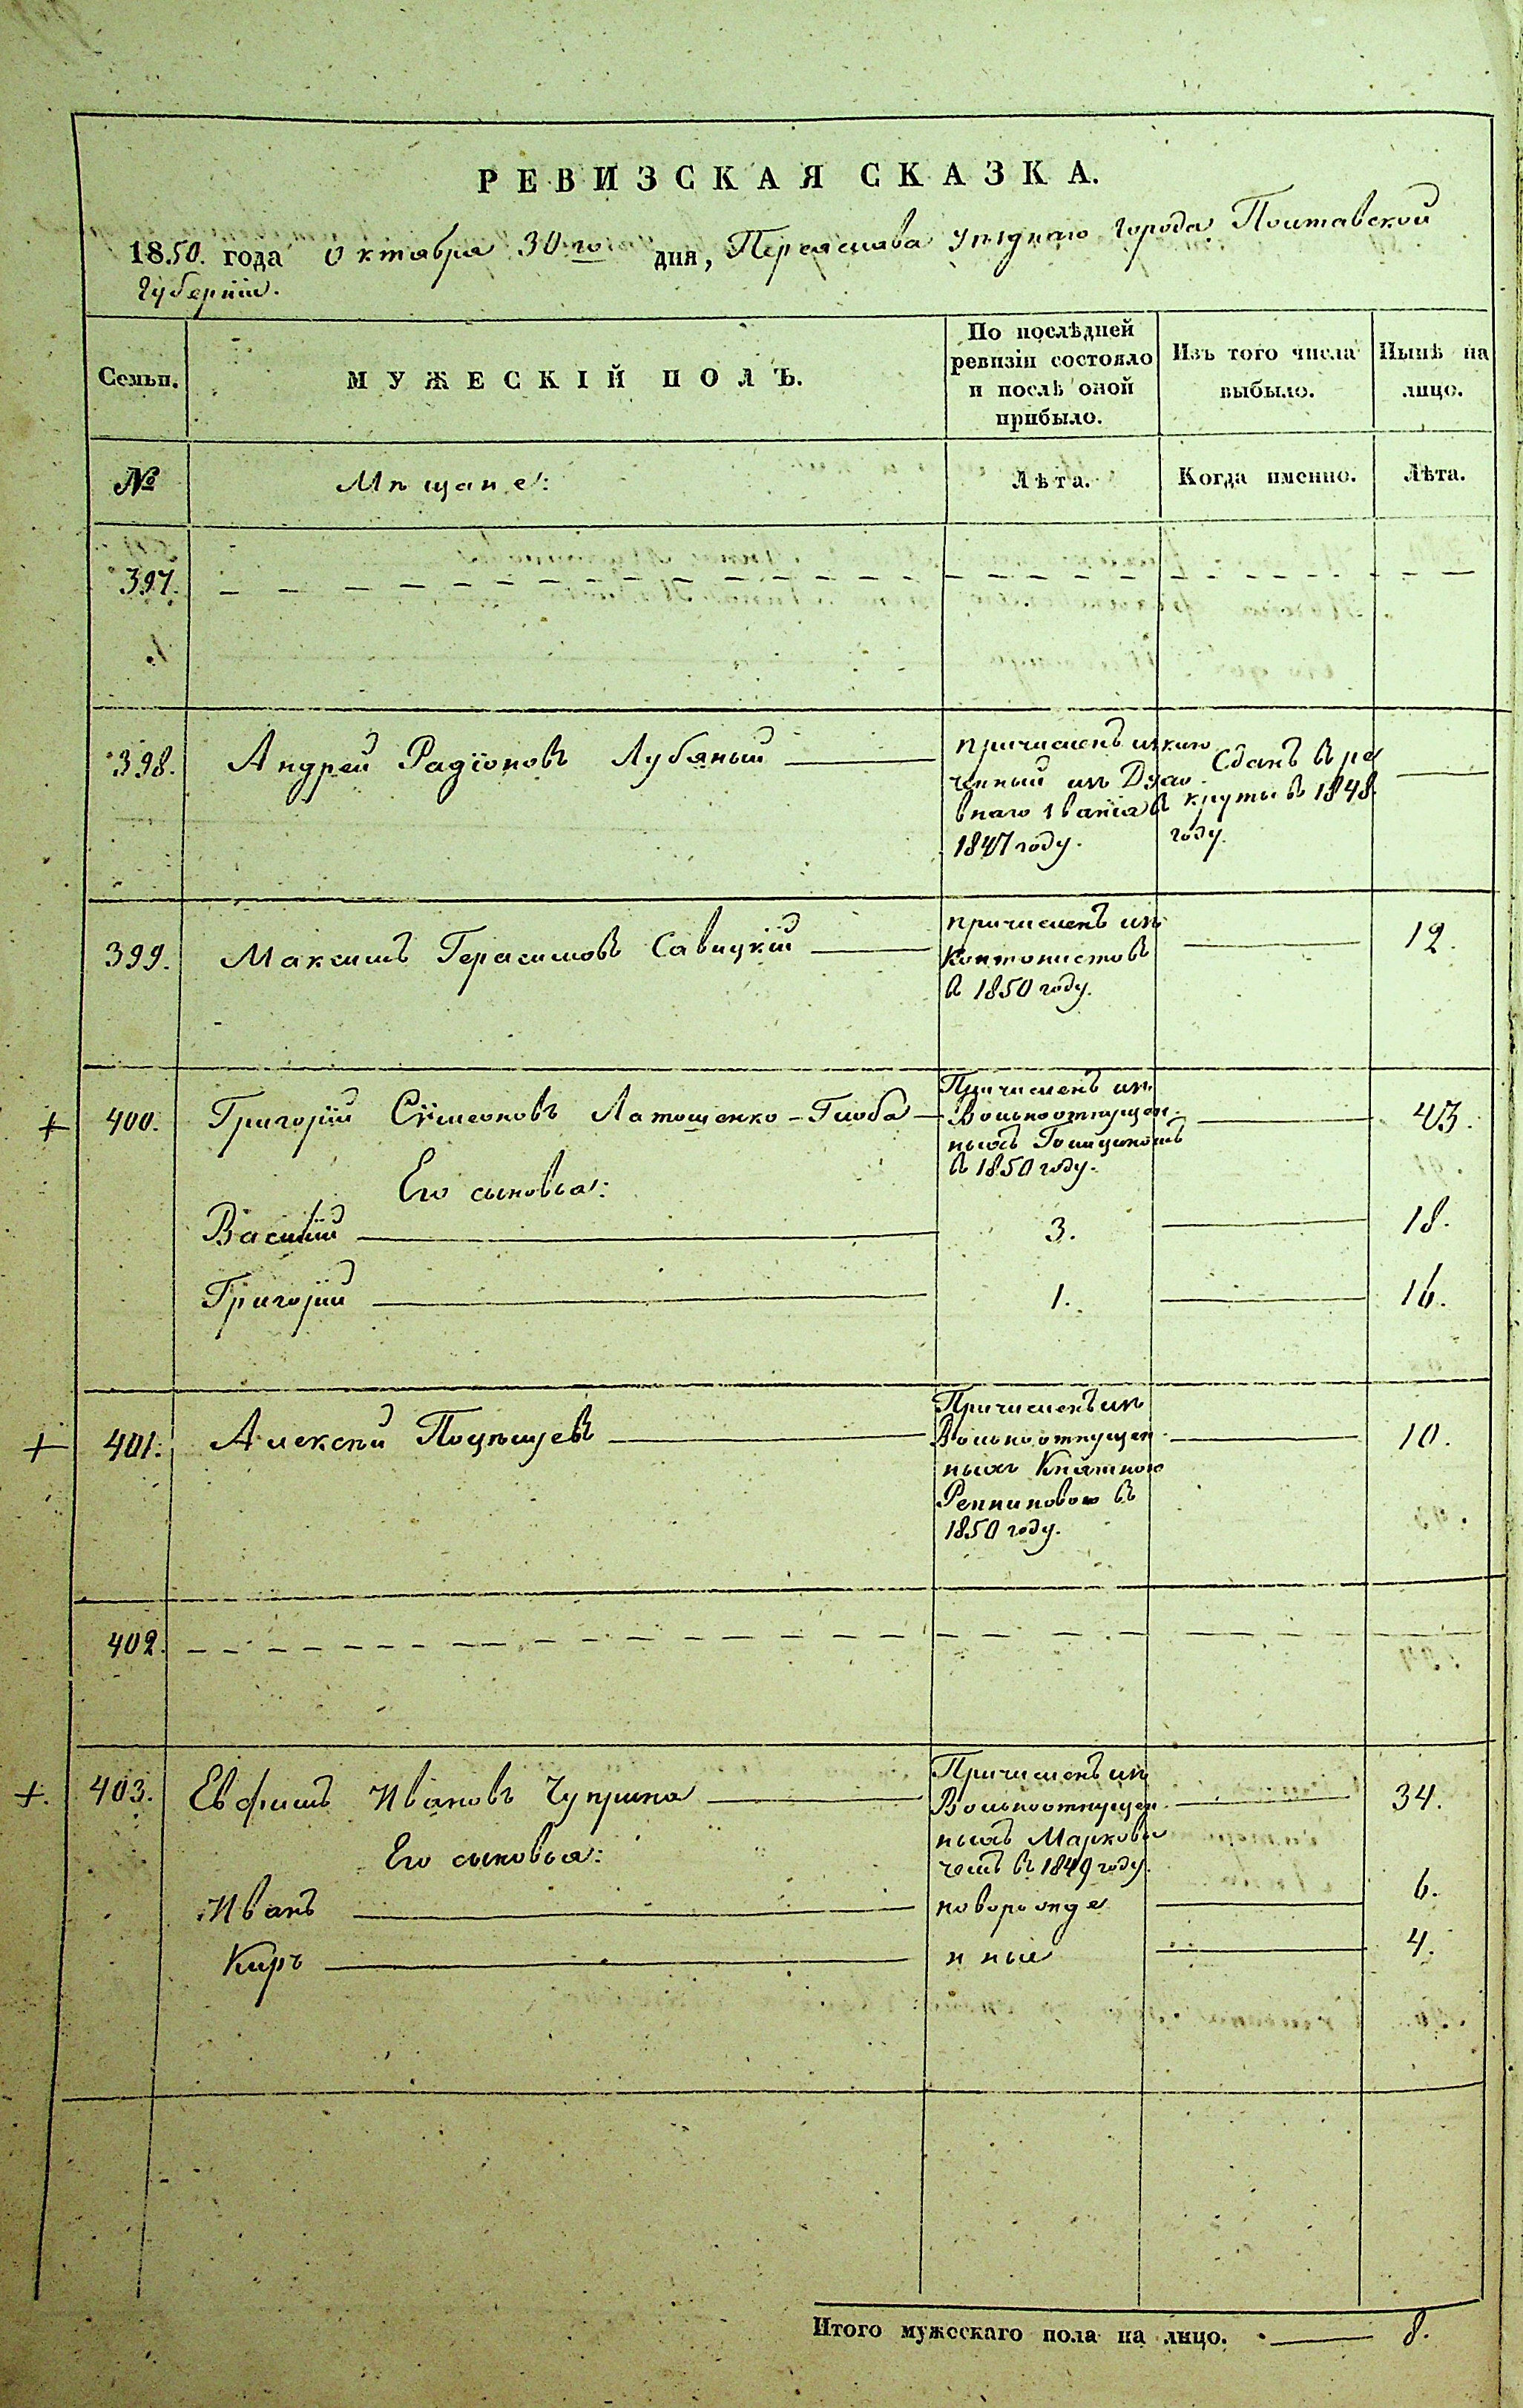 РЕВИЗСКАЯ СКАЗКА.
1850. года Октября 30го дня, Переяслава уѣзднаго города Полтавской
Губерніи.
Семьи.
МУЖЕСКІЙ ПОЛЪ.
По послѣдней
ревизіи состояло
и послѣ оной
прибыло.
Изъ того числа
выбыло.
Нынѣ на
лицо.
№
Мѣщане:
Лѣта.
Когда именно.
Лѣта.
397.
398. Андрей Радіоновъ Лубяный
причисленъ исклю
ченный изъ Духо
внаго званія въ
1847 году.
Сданъ въ ре
круты въ 1848
году.
399. Максимъ Герасимовъ Савицкій
причисленъ изъ
Кантонистовъ
въ 1850 году.
12.
+ 400. Григорій Сѵмеоновъ Латошенко-Глоба
Причисленъ изъ
Вольноотпущен
ныхъ Голицыномъ
въ 1850 году.
43.
Его сыновья:
Василій 3. 18.
Григорій 1. 16.
+ 401. Алексѣй Поцѣлуевъ
Причисленъ изъ
Вольноотпущен
ныхъ Княжною
Репниновою въ
1850 году.
10.
402.
+. 403. Евфимъ Ивановъ Чуприна
Причисленъ изъ
Вольноотпущен
ныхъ Маркови
чемъ въ 1849 году.
34.
Его сыновья:
Иванъ новорожде 6.
Киръ нные 4.
Итого мужескаго пола на лицо. 8.